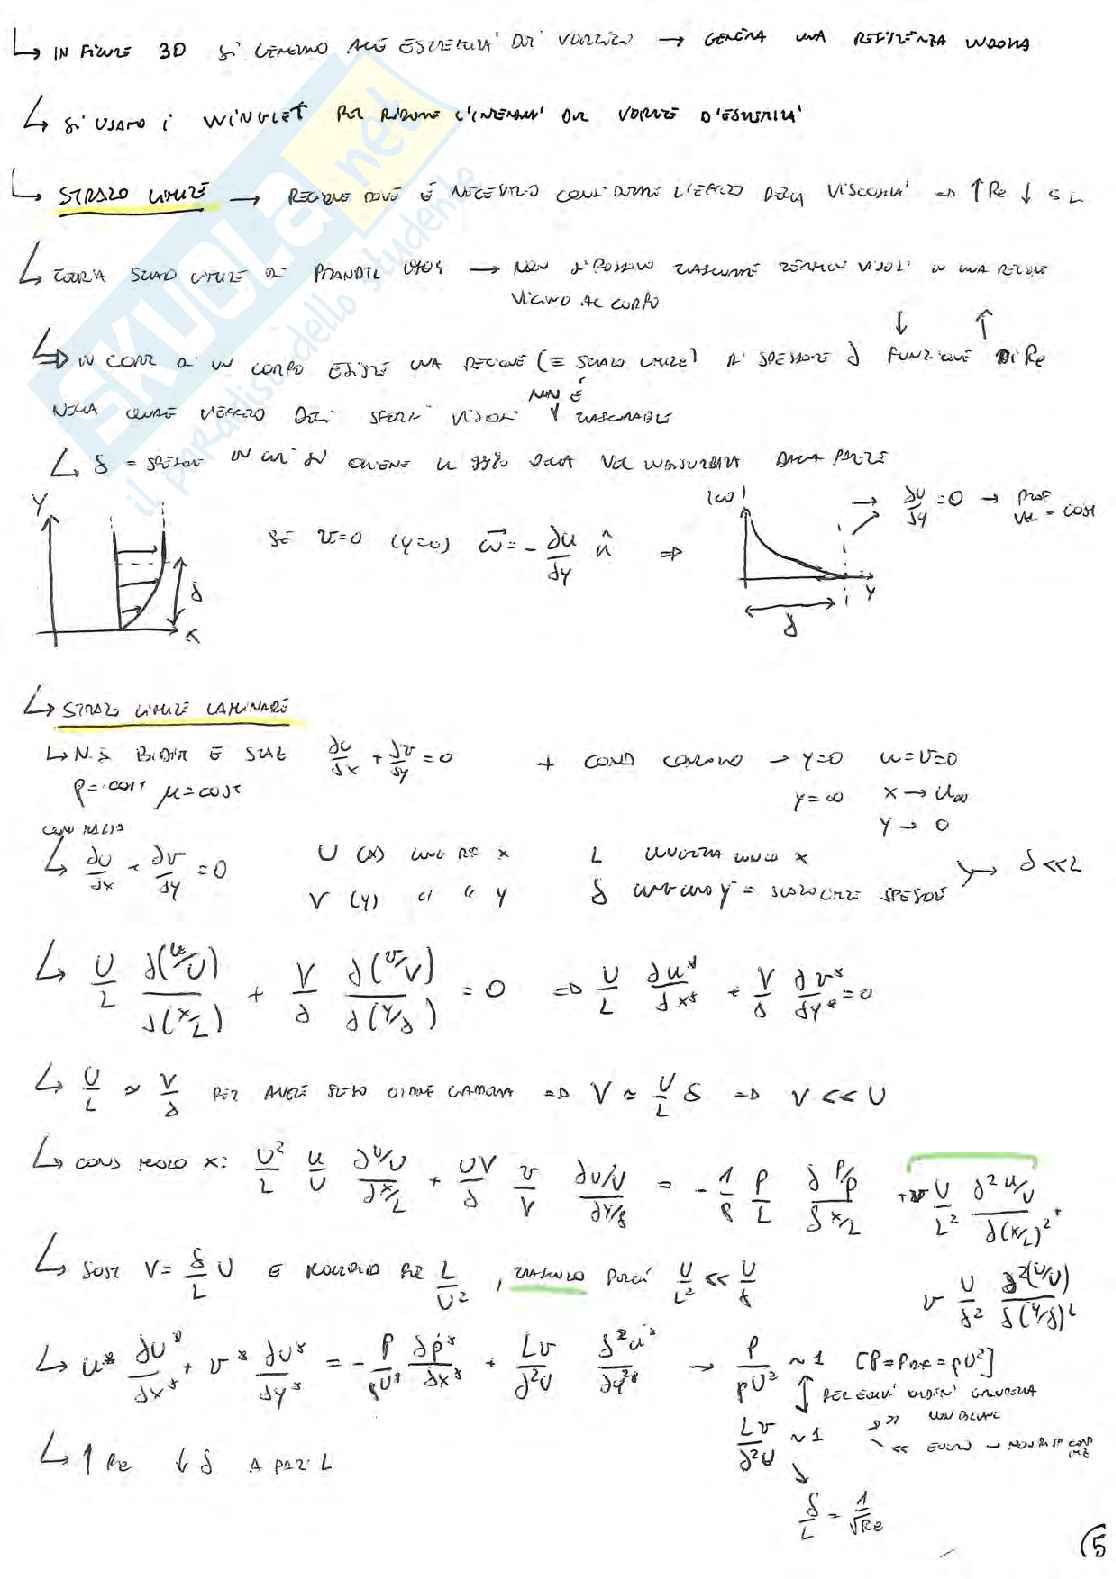 ↳ IN FIGURE 3D SI GENERANO ALLE ESTREMITÀ DEI VORTICI → GENERA UNA RESISTENZA INDOTTA
↳ SI USANO I WINGLET PER RIDURRE L'INTENSITÀ DEL VORTICE D'ESTREMITÀ
↳ STRATO LIMITE → REGIONE DOVE È NECESSARIO CONSIDERARE L'EFFETTO DELLA VISCOSITÀ ⇒ ↑Re ↓ S L
↳ TEORIA STRATO LIMITE DI PRANDTL 1904 → NON SI POSSONO TRASCURARE TERMINI VISCOSI IN UNA REGIONE
VICINO AL CORPO
↳ IN CONT DI UN CORPO ESISTE UNA REGIONE (≡ STRATO LIMITE) DI SPESSORE δ FUNZIONE DI Re
NELLA QUALE L'EFFETTO DEGLI SFORZI VISCOSI NON È TRASCURABILE
↳ δ = SPESSORE IN CUI SI OTTIENE IL 99% DELLA VEL INDISTURBATA DALLA PARETE
Y
δ
x
SE v=0 (y=0) ω⃗ = - ∂u/∂y n̂ ⇒
|ω|
δ
Y
→ ∂u/∂y = 0 → PROF VEL = COST
↳ STRATO LIMITE LAMINARE
↳ N.S BIDIM E STAZ ∂u/∂x + ∂v/∂y = 0 + COND CONTORNO → y=0 u=v=0
ρ=cost μ=cost
y=∞ x → U∞
y → 0
↳ ∂u/∂x + ∂v/∂y = 0
U (x) x L LUNGHEZZA LUNGO x
V (y) " " y δ LUNGO y = STRATO LIMITE SPESSORE → δ<<L
↳ U/L ∂(u/U)/∂(x/L) + V/δ ∂(v/V)/∂(y/δ) = 0 ⇒ U/L ∂u*/∂x* + V/δ ∂v*/∂y* = 0
↳ U/L ≃ V/δ PER AVERE STESSO ORDINE GRANDEZZA ⇒ V ≃ U/L δ ⇒ V << U
↳ CONS MOTO X: U²/L u/U ∂u/U/∂x/L + UV/δ v/V ∂u/U/∂y/δ = - 1/ρ P/L ∂P/P/∂x/L + ν U/L² ∂²u/U/∂(x/L)² +
ν U/δ² ∂²(u/U)/∂(y/δ)²
↳ SOST V = δ/L U E MOLTIPLICO PER L/U², TRASCURO POICHÉ U/L² << U/δ
↳ u* ∂u*/∂x* + v* ∂u*/∂y* = - P/ρU² ∂p*/∂x* + Lν/δ²U ∂²u*/∂y²* → P/ρU² ~ 1 [P = = ρU²]
PER EQUIV ORDINI GRANDEZZA
Lν/δ²U ~ 1
↳ ↑ Re ↓ δ A PARI L
δ/L = 1/√Re
5
SKUOLA.net
il paradiso dello studente